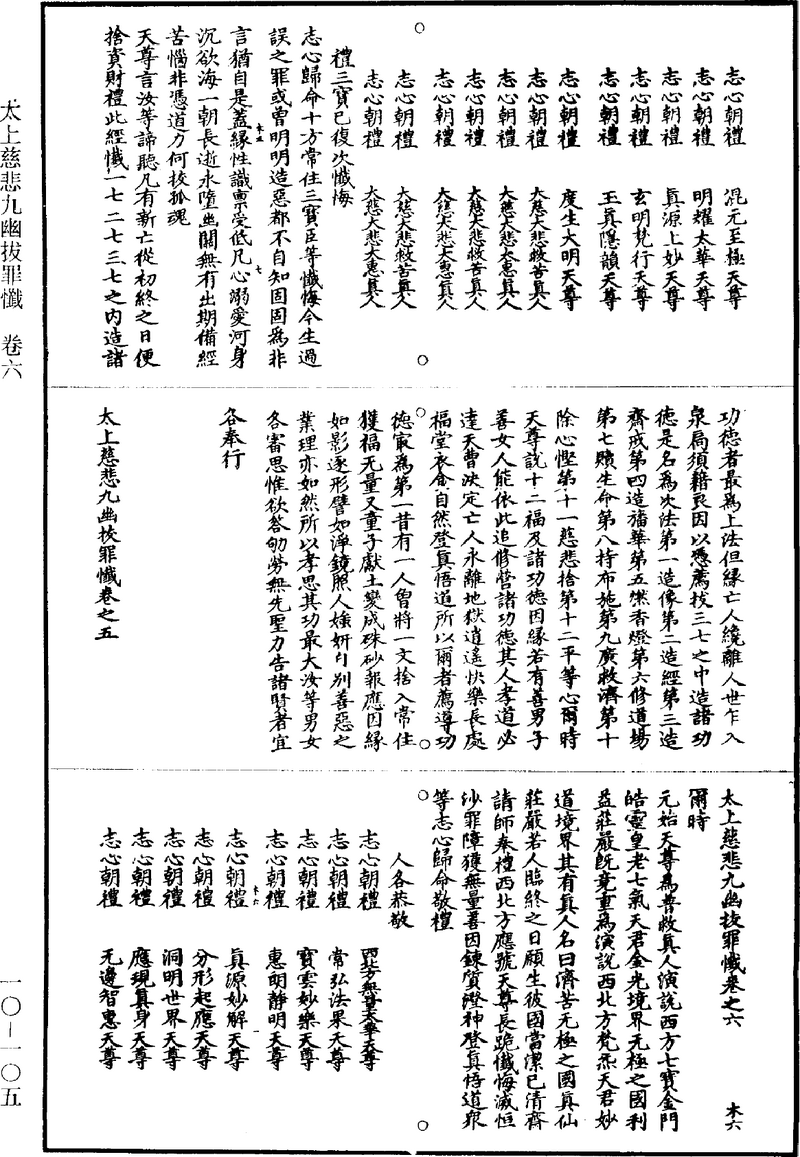 太上慈悲九幽拔罪懺　卷六
志心朝禮　混元至極天尊
志心朝禮　明耀太華天尊
志心朝禮　眞源上妙天尊
志心朝禮　玄明梵行天尊
志心朝禮　玉眞隱韻天尊
志心朝禮　度生大明天尊
志心朝禮　大慈大悲救苦眞人
志心朝禮　大慈大悲大惠眞人
志心朝禮　大慈大悲救苦眞人
志心朝禮　大慈大悲大惠眞人
志心朝禮　大慈大悲救苦眞人
志心朝禮　大慈大悲大惠眞人
禮三寶已復次懺悔
志心歸命十方常住三寶臣等懺悔今生過
誤之罪或曾明明造惡都不自知固固為非
言猶自是蓋緣性識稟受低凡心溺愛河身
木五　七
沉欲海一朝長逝永墮幽關無有出期備經
苦惱非憑道力何拔孤魂
天尊言汝等諦聽凡有新亡從初終之日便
捨資財禮此經懺一七二七三七之內造諸
功德者最為上法但緣亡人纔離人世乍入
泉扃須藉良因以憑薦拔三七之中造諸功
德是名為次法第一造像第二造經第三造
齋戒第四造旛華第五燃香燈第六修道場
第七贖生命第八持布施第九廣救濟第十
除心慳第十一慈悲捨第十二平等心爾時
天尊說十二福及諸功德因緣若有善男子
善女人能依此追修營諸功德其人孝道必
達天曹決定亡人永離地獄逍遙快樂長處
福堂衣食自然登眞悟道所以爾者薦導功
德最為第一昔有一人曾將一文捨入常住
獲福无量又童子獻土變成硃砂報應因緣
如影逐形譬如淨鏡照人媸妍自別善惡之
業理亦如然所以孝思其功最大汝等男女
各審思惟欲答劬勞無先聖力告諸賢者宜
各奉行
太上慈悲九幽拔罪懺卷之五
太上慈悲九幽拔罪懺卷之六　木六
爾時
元始天尊為普救眞人演說西方七寶金門
皓靈皇老七氣天君金光境界无極之國利
益莊嚴旣竟重為演說西北方梵炁天君妙
道境界其有眞人名曰濟苦无極之國眞仙
莊嚴若人臨終之日願生彼國當潔己清齋
請師奉禮西北方應號天尊長跪懺悔滅恒
沙罪障獲無量善因鍊質澄神登眞悟道衆
等志心歸命敬禮
人各恭敬
志心朝禮　西北方無量太華天尊
志心朝禮　常弘法果天尊
志心朝禮　寶雲妙樂天尊
志心朝禮　惠朗靜明天尊
木六
志心朝禮　眞源妙解天尊
志心朝禮　分形起應天尊
志心朝禮　洞明世界天尊
志心朝禮　應現眞身天尊
志心朝禮　无邊智惠天尊
一〇—一〇五